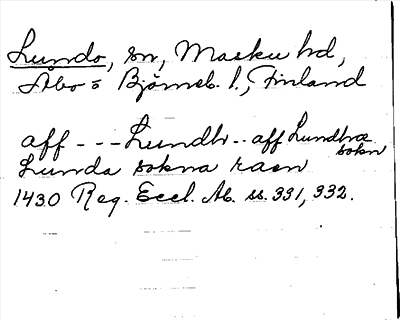 Lundo, sn, Masku hd,
Åbo o Björneb. l., Finland
aff - - - Lundh .. aff Lundhæ
sokn
Lunda sokna raen
1430 Reg. Eccl. Ab. ss. 331, 332.